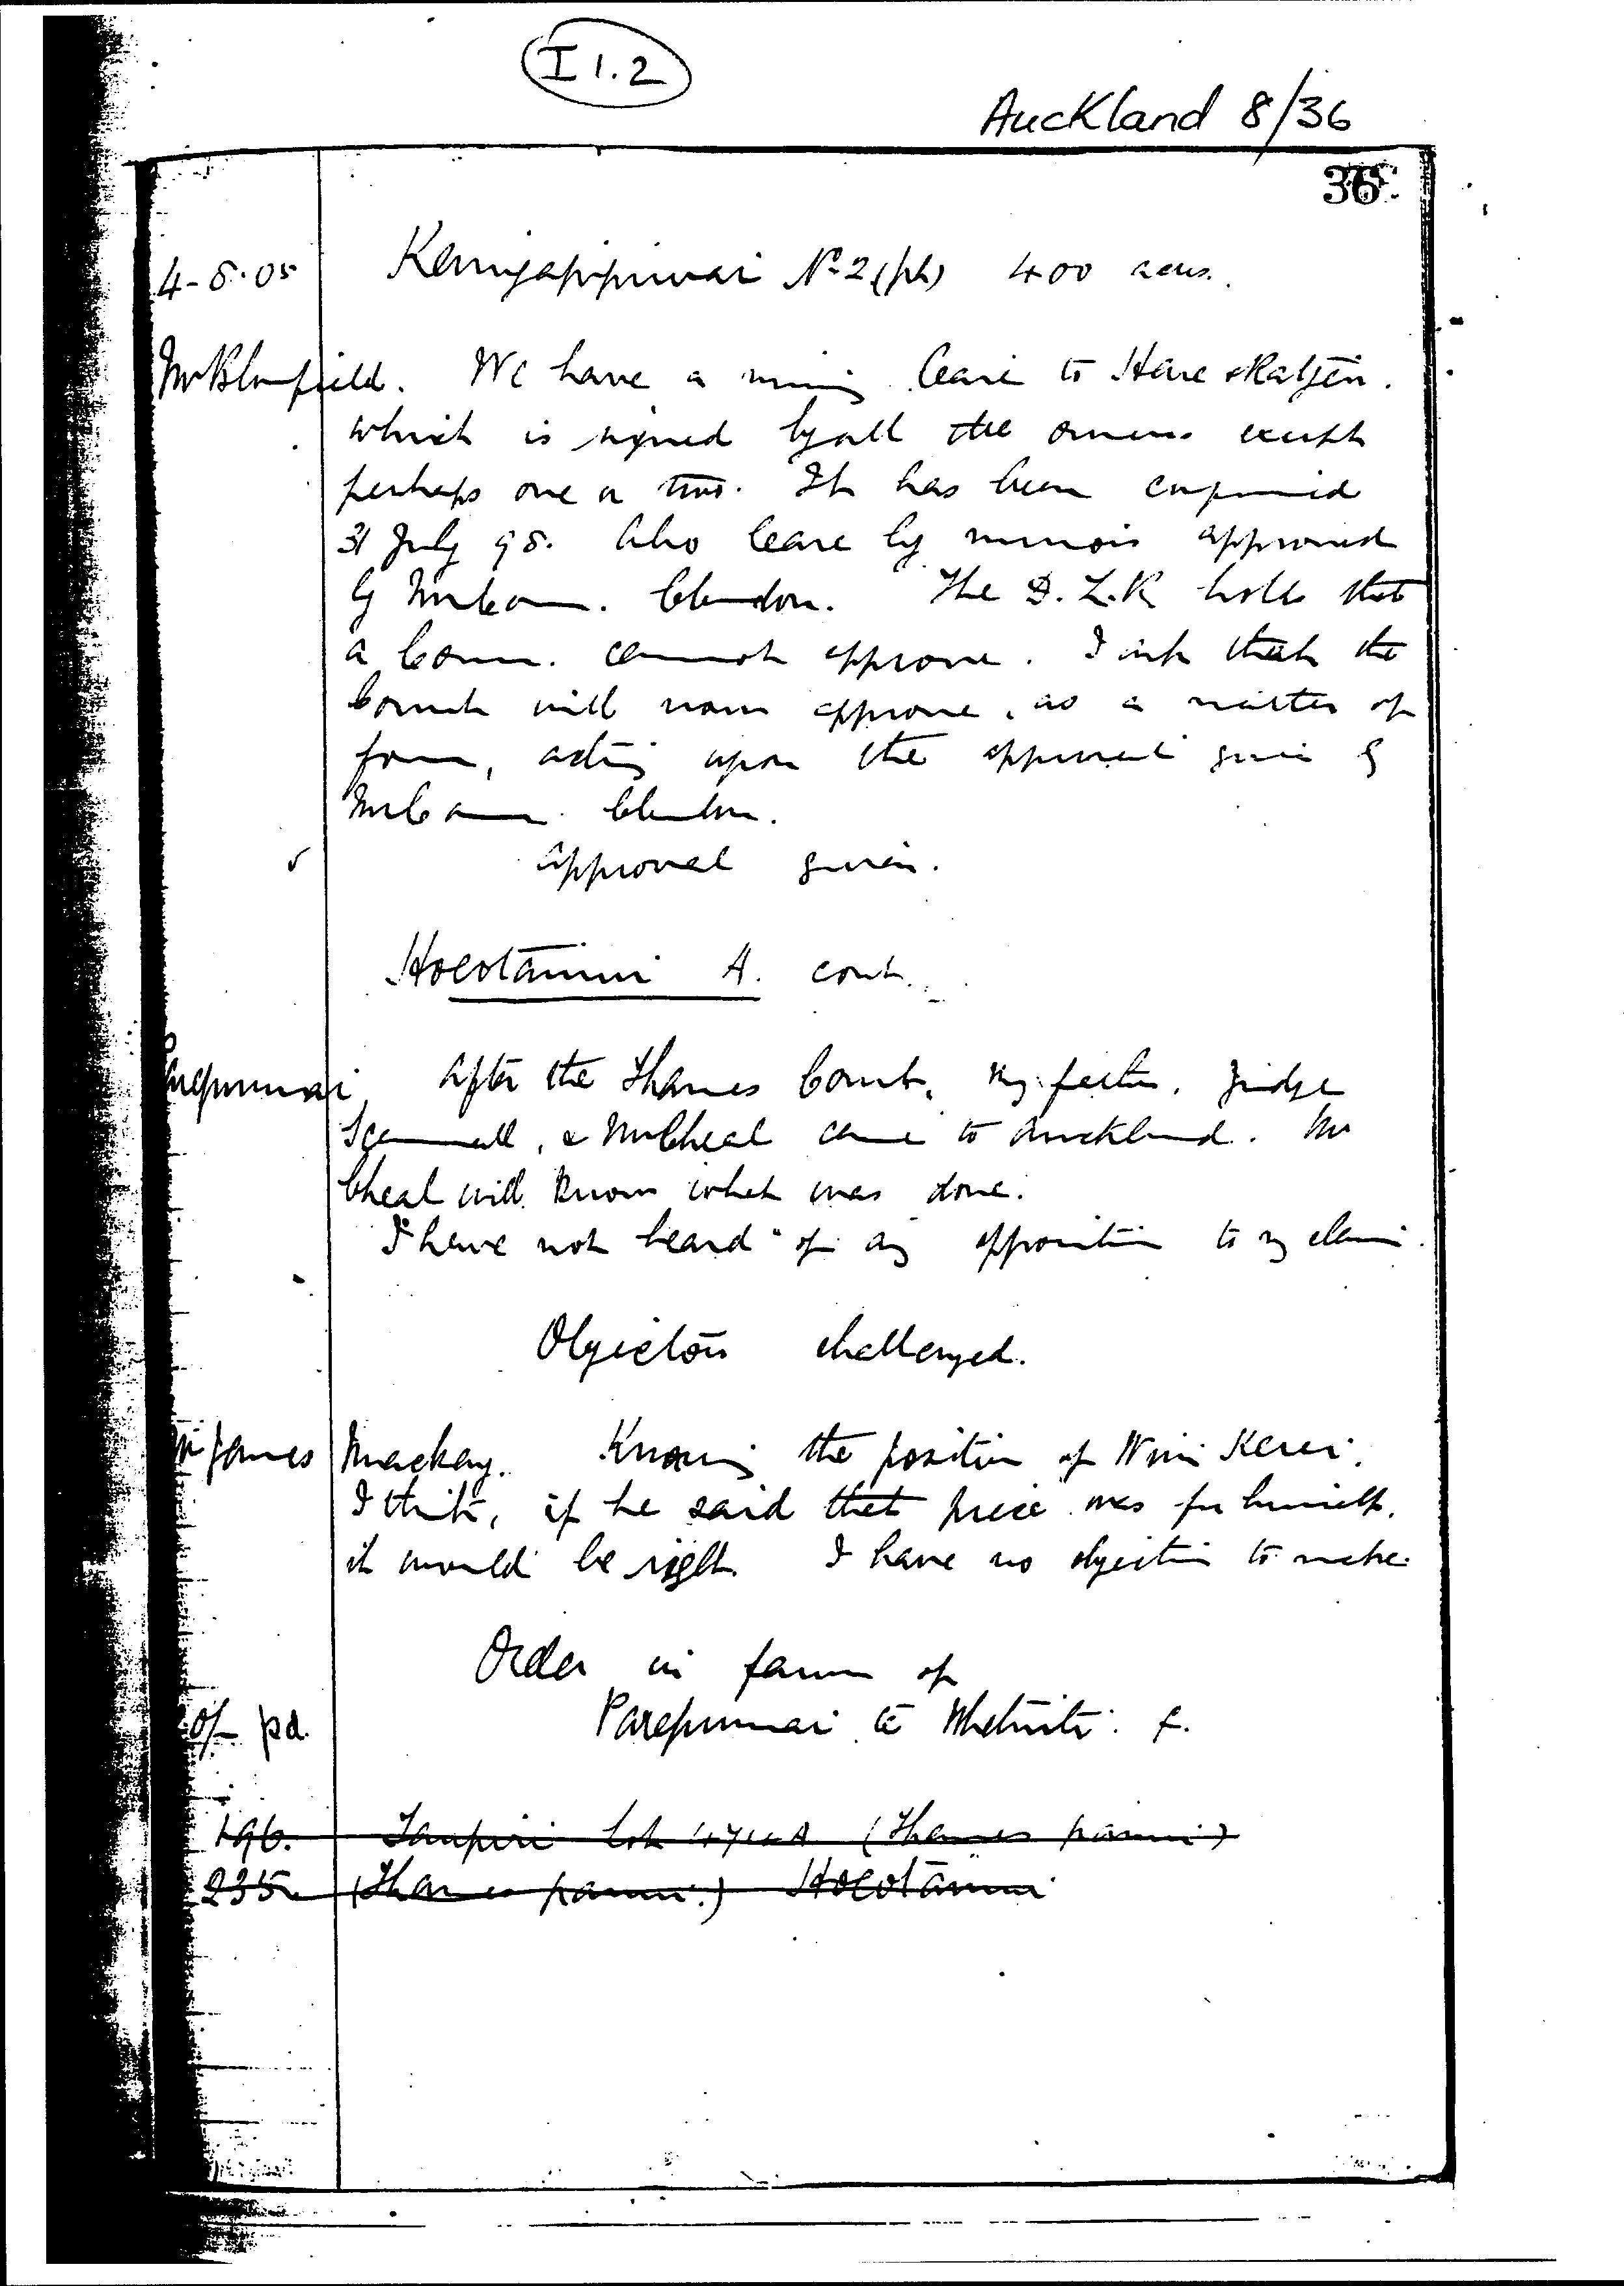 I 1.2
Auckland 8/36
36
4-5-05 No 2 (pt) 400 acres.
Mr Blomfield. We have a mining lease to Hare & Ratjen.
which is signed by all the owners except
perhaps one or two. It has been
31 July 98. Also lease by minors approved
by Clendon. The D.L.R holds that
a Comr. cannot approve. I ask that the
Court will now approve, as a matter of
form, acting upon the approval given by
Clendon.
approval given.
Hoeotainui A. cont.
Parepumai After the Thames Court, my father, Judge
Scannell, & Mr Cheal came to Auckland. Mr
Cheal will know what was done.
I have not heard of any opposition to my claim.
Objectors challenged.
Mr James Mackay. Knowing the position of Wini Kerei,
I think, if he said that piece was for himself,
it would be right. I have no objection to make.
Order in favour of
Parepumai te Whetuiti. f.
o/- pd.
196. Taupiri Lot (Thames panui)
235. (Thames panui.) Hoeotainui